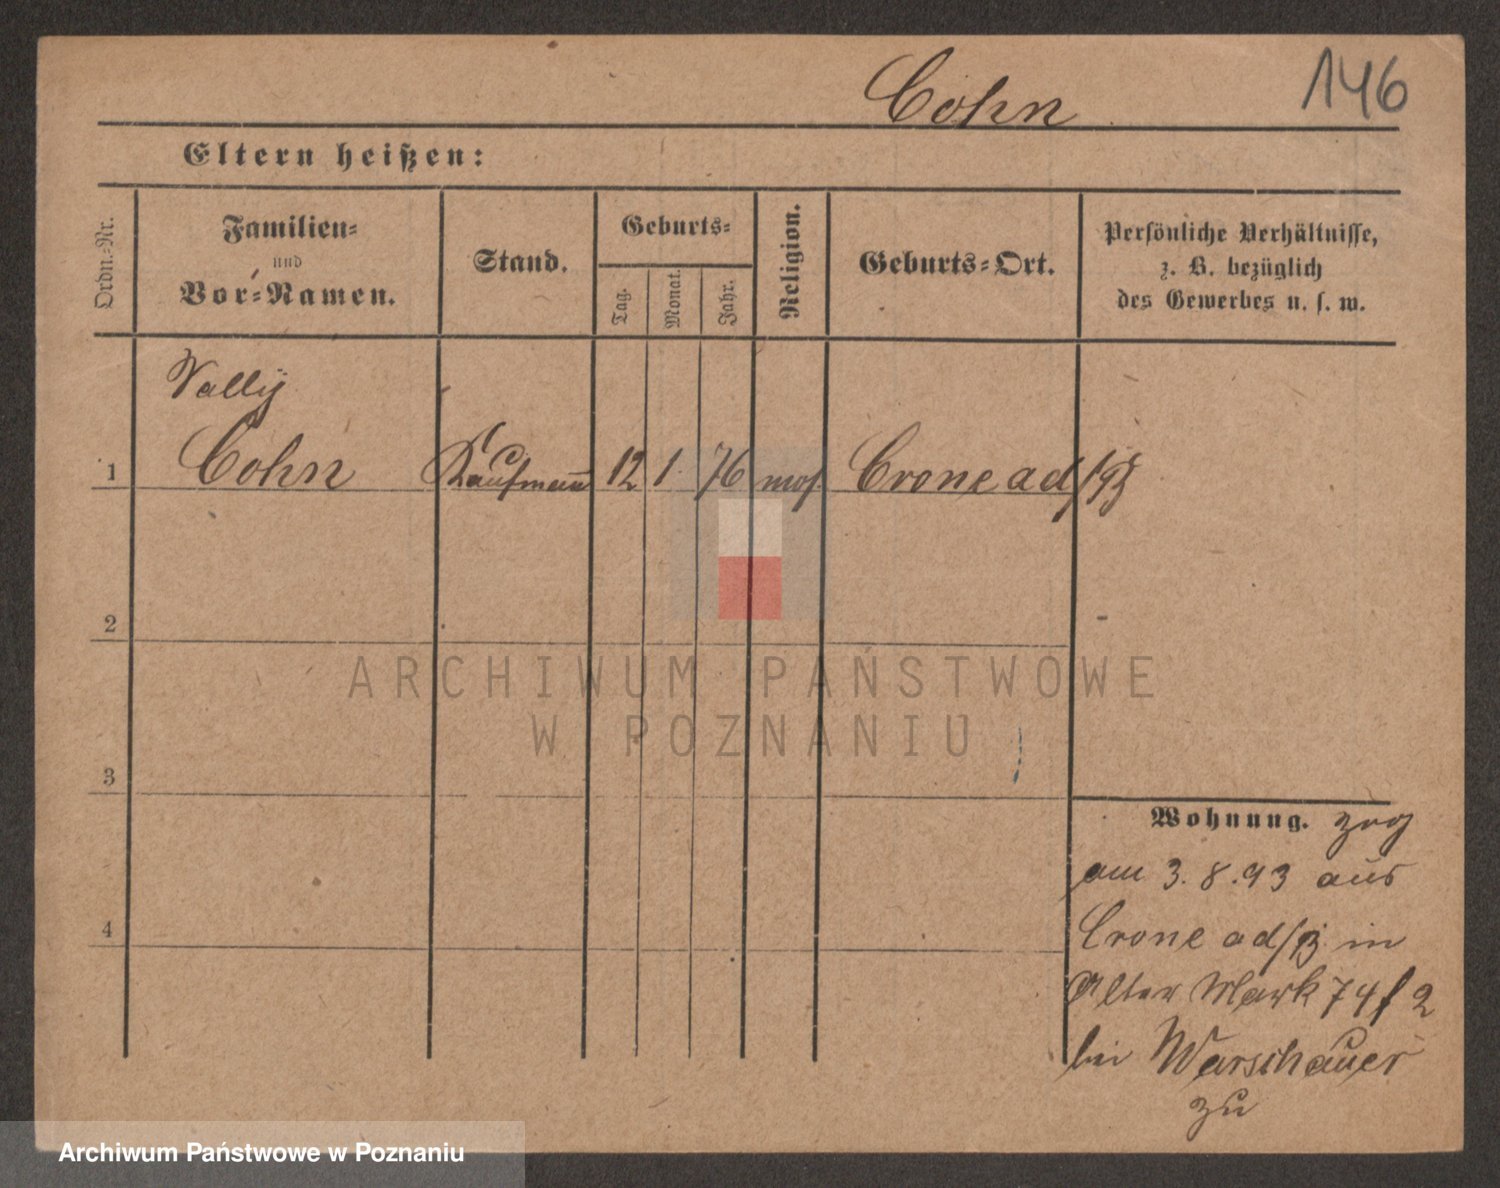 Cohn
146
Eltern heißen:
Ordn.-Nr.
Familien-
und
Vor-Namen.
Stand.
Geburts-
Tag.
Monat.
Jahr.
Religion.
Geburts-Ort.
Persönliche Verhältnisse,
z. B. bezüglich
des Gewerbes u. s. w.
Vally
1 Cohn Kaufmann 12 1. 76 mos. Crone ad/B
2
3
4
Wohnung. zog
am 3.8.93 aus
Crone ad/B. in
Alter Mark 74/2
bei Warschauer
zu
ARCHIWUM PAŃSTWOWE
W POZNANIU
Archiwum Państwowe w Poznaniu